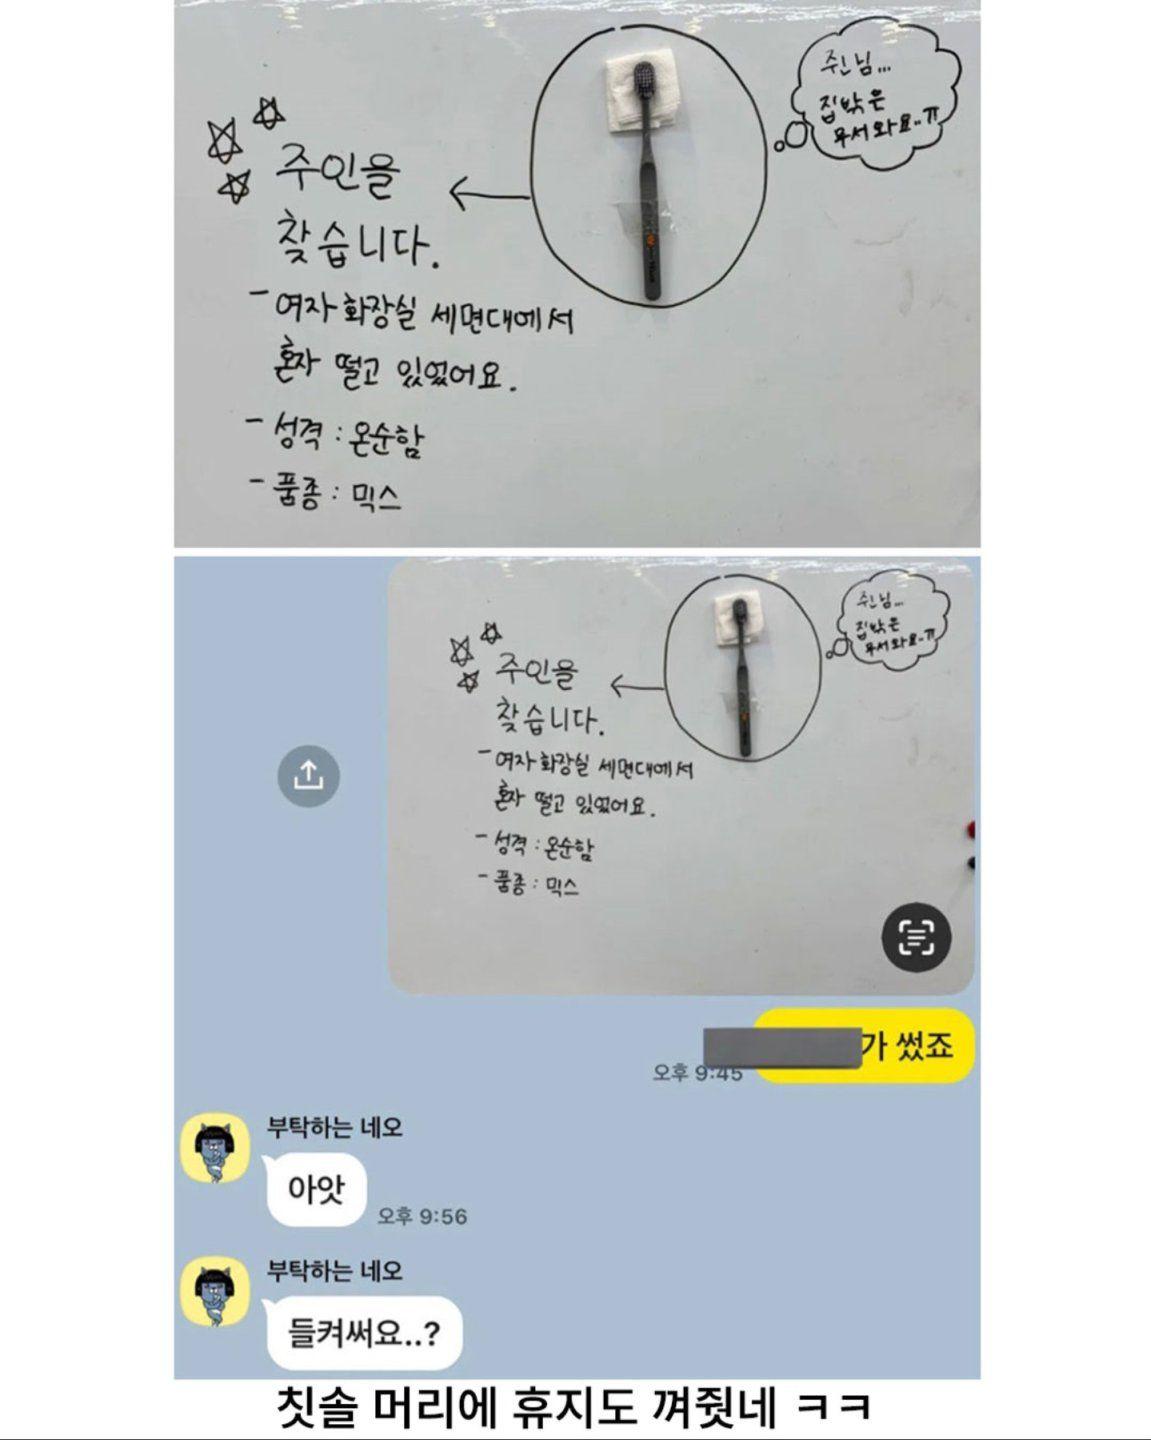 주인님...
집밖은
무서워요..ㅠ
주인을
찾습니다.
- 여자 화장실 세면대에서
혼자 떨고 있었어요.
- 성격 : 온순함
- 품종 : 믹스
주인님...
집밖은
무서워요..ㅠ
주인을
찾습니다.
- 여자 화장실 세면대에서
혼자 떨고 있었어요.
- 성격 : 온순함
- 품종 : 믹스
가 썼죠
오후 9:45
부탁하는 네오
아앗
오후 9:56
부탁하는 네오
들켜써요..?
칫솔 머리에 휴지도 껴줬네 ㅋㅋ